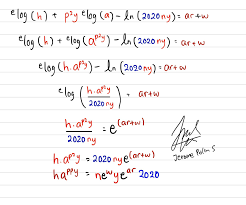 e log(h) + p²y e log(a) - ln(2020ny) = ar+w
e log(h) + e log(a^p²y) - ln(2020ny) = ar+w
e log(h.a^p²y) - ln(2020ny) = ar+w
e log(h.a^p²y / 2020ny) = ar+w
h.a^p²y / 2020ny = e^(ar+w)
h.a^p²y = 2020nye^(ar+w)
ha^ppy = ne^wye^ar 2020
Jerome